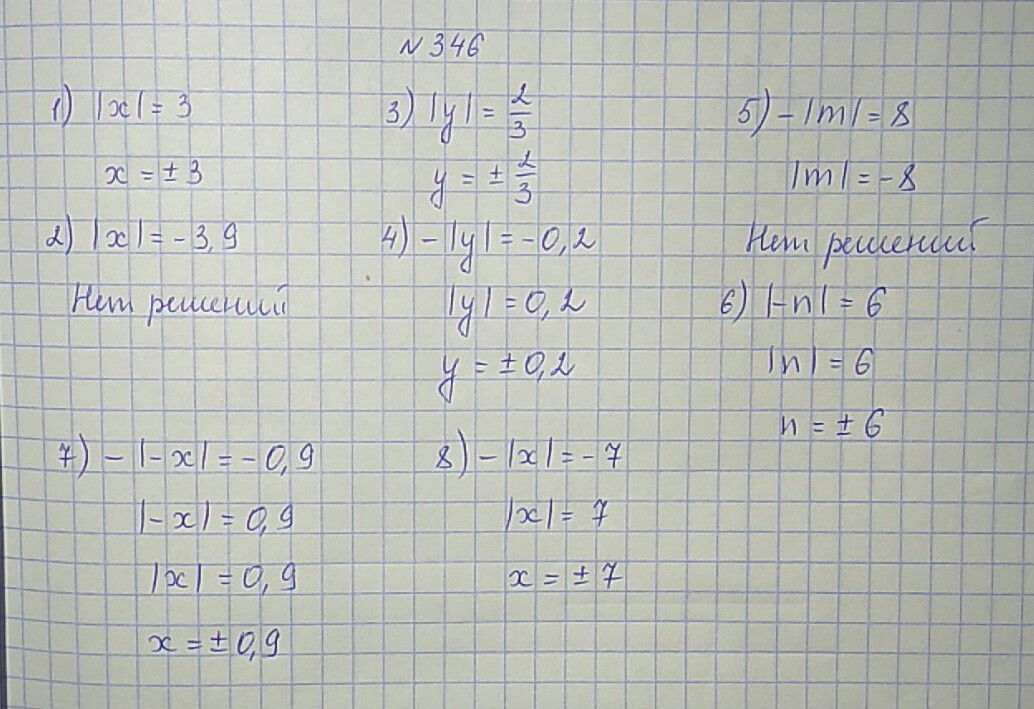 N 346
1) |x| = 3
x = ± 3
2) |x| = - 3,9
Нет решений
3) |y| = 2/3
y = ± 2/3
4) - |y| = - 0,2
|y| = 0,2
y = ± 0,2
5) - |m| = 8
|m| = - 8
Нет решений
6) |-n| = 6
|n| = 6
n = ± 6
7) - |-x| = - 0,9
|-x| = 0,9
|x| = 0,9
x = ± 0,9
8) - |x| = - 7
|x| = 7
x = ± 7